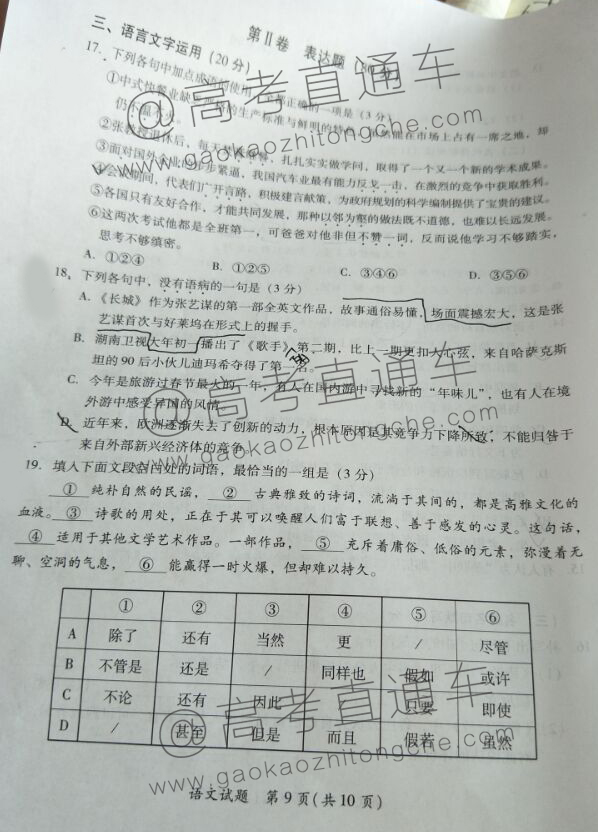 第Ⅱ卷 表达题
三、语言文字运用（20分）
17．下列各句中加点成语的使用，全都正确的一项是（3分）
①中式快餐业缺乏严格的生产标准与鲜明的特色，虽然能在市场上占有一席之地，却
仍不温不火。
②张教授退休后，每天扎扎实实做学问，取得了一个又一个新的学术成果。
③面对国外企业的步步紧逼，我国汽车业最有能力反戈一击，在激烈的竞争中获取胜利。
④会议期间，代表们广开言路，积极建言献策，为政府规划的科学编制提供了宝贵的建议。
⑤各国只有友好合作，才能共同发展，那种以邻为壑的做法既不道德，也难以长远发展。
⑥这两次考试他都是全班第一，可爸爸对他非但不赞一词，反而说他学习不够踏实，
思考不够缜密。
A．①②④ B．①②⑤ C．③④⑥ D．③⑤⑥
18．下列各句中，没有语病的一句是（3分）
A．《长城》作为张艺谋的第一部全英文作品，故事通俗易懂，场面震撼宏大，这是张
艺谋首次与好莱坞在形式上的握手。
B．湖南卫视大年初一播出了《歌手》第二期，比上一期更扣人心弦，来自哈萨克斯
坦的90后小伙儿迪玛希夺得了第一名。
C．今年是旅游过春节最火的一年，有人在国内游中寻找新的“年味儿”，也有人在境
外游中感受异国的风情。
D．近年来，欧洲逐渐失去了创新的动力，根本原因是其竞争力下降所致，不能归咎于
来自外部新兴经济体的竞争。
19．填入下面文段空白处的词语，最恰当的一组是（3分）
① 纯朴自然的民谣， ② 古典雅致的诗词，流淌于其间的，都是高雅文化的
血液。 ③ 诗歌的用处，正在于其可以唤醒人们富于联想、善于感发的心灵。这句话，
④ 适用于其他文学艺术作品。一部作品， ⑤ 充斥着庸俗、低俗的元素，弥漫着无
聊、空洞的气息， ⑥ 能赢得一时火爆，但却难以持久。
① ② ③ ④ ⑤ ⑥
A 除了 还有 当然 更 / 尽管
B 不管是 还是 / 同样也 假如 或许
C 不论 还有 因此 只要 即使
D / 甚至 但是 而且 假若 虽然
语文试题 第9页（共10页）
@高考直通车
www.gaokaozhitongche.com
@高考直通车
www.gaokaozhitongche.com
@高考直通车
www.gaokaozhitongche.com